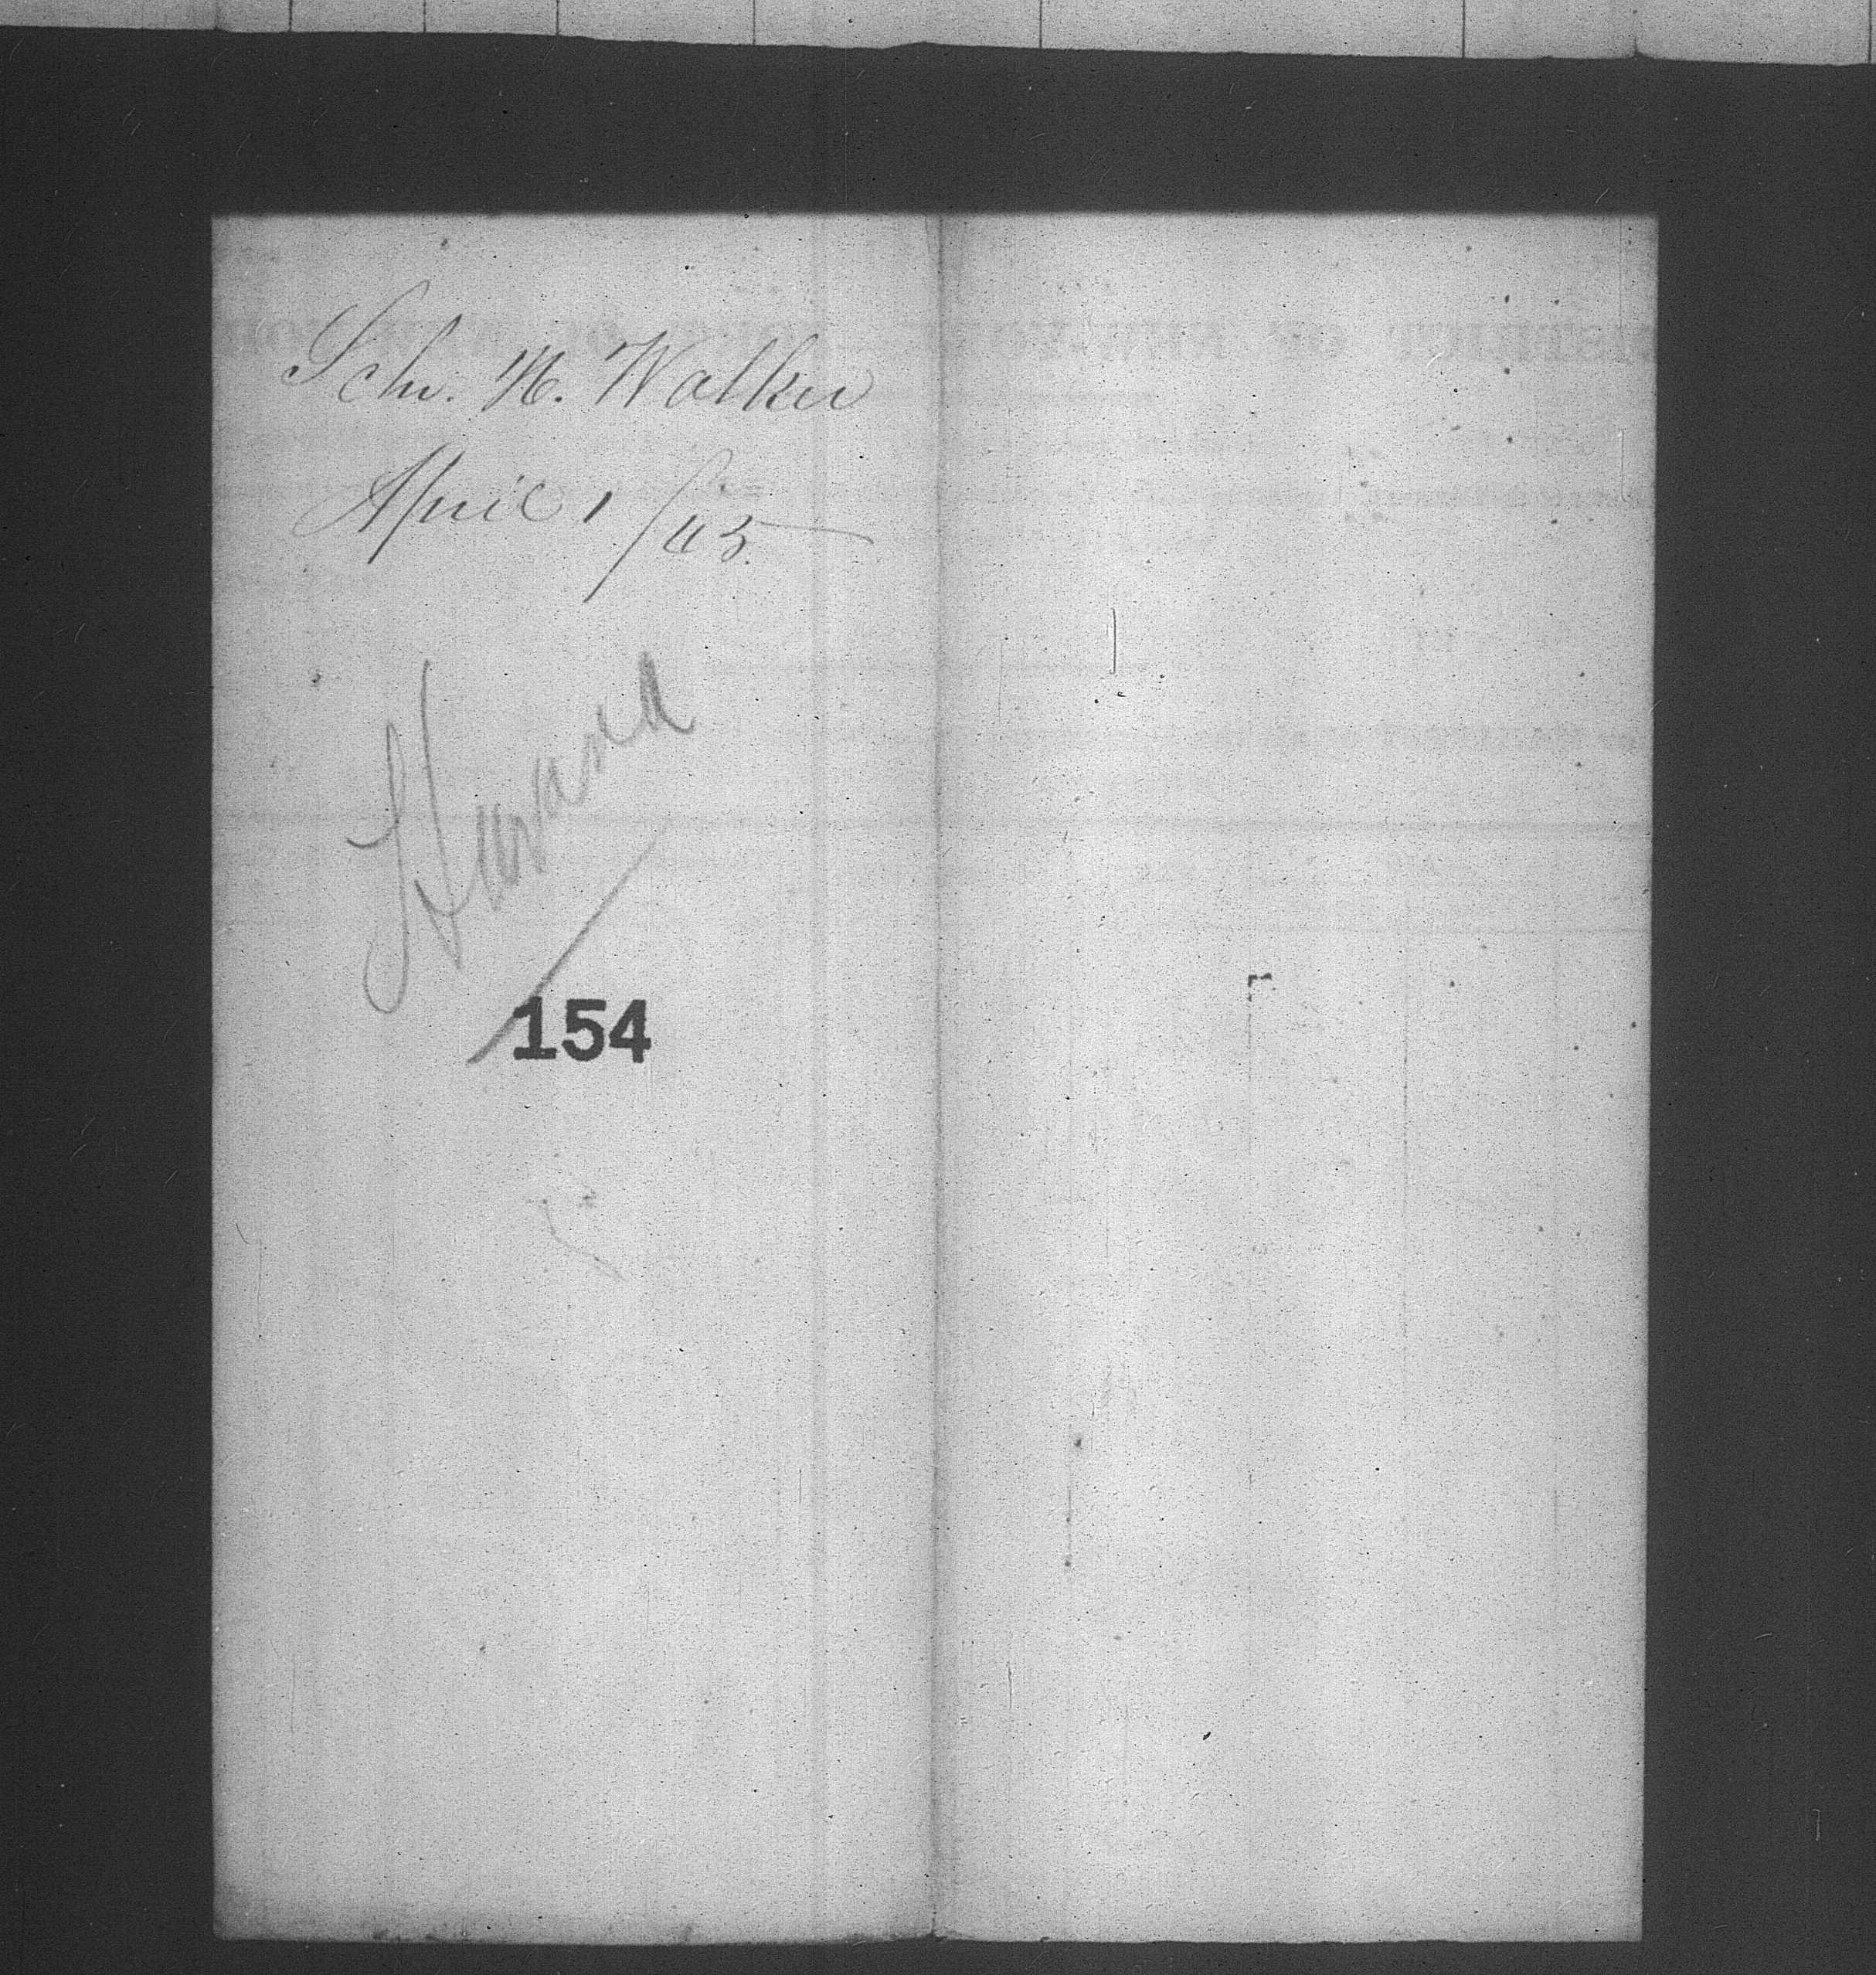 Schr. N. Walker
April 1/65.
Havana
154